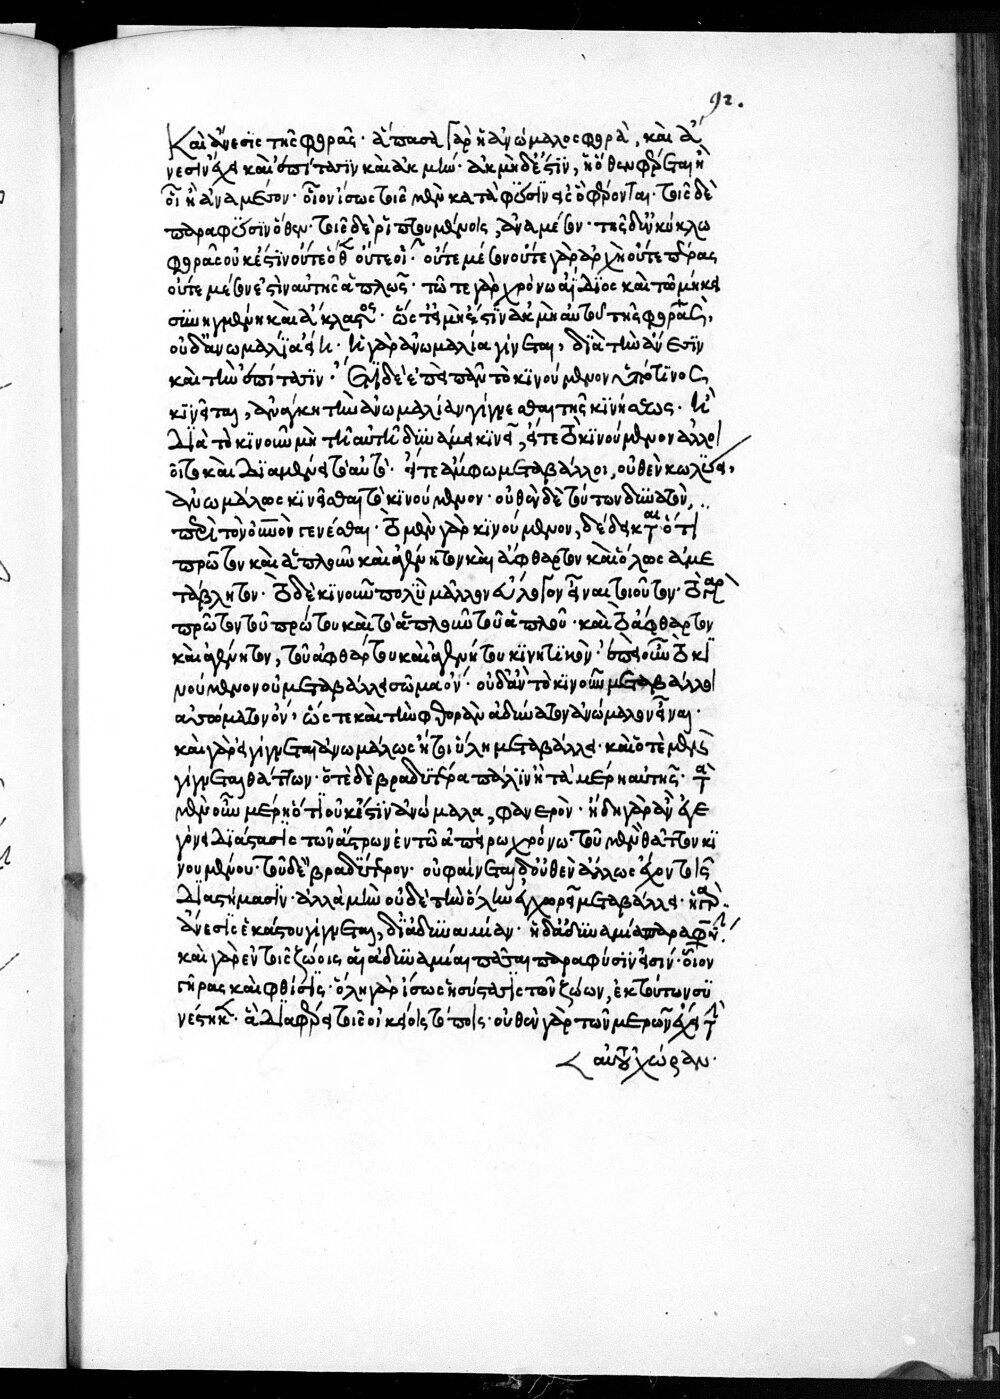 92.
Καὶ ἄνεσϊς τῆς φορᾶς · ἅπασα γὰρ ἡ ἀνώμαλος φορὰ, καὶ ἄ
νεσιν ἔχει καὶ ἐπίτασϊν καὶ ἀκμὴν · ἀκμὴ δέ ἐστϊν, ἢ ὅθεν φέρεται ἢ
οἷ ἢ ἀνα μέσον · οἷον ἴσως τοῖς μὲν κατὰ φύσϊν εἰς ὃ φέρονται · τοῖς δὲ
παρα φύσϊν ὅθεν · τοῖς δὲ ῥιπτουμένοις, ἀνα μέσον · τῆς δὲ ἐν κύκλω
φορᾶς οὐκ ἔστϊν οὔτε ὅθεν οὔτε οἷ · οὔτε μέσον οὔτε γὰρ ἀρχὴ οὔτε πέρας
οὔτε μέσον ἐστὶν αὐτῆς ἁπλῶς · τῶ τε γὰρ χρόνω ἀΐδϊος καὶ τῶ μήκει
συνηγμένη καὶ ἄκλαστος · ὥστ' εἰ μὴ ἔστϊν ἀκμὴ αὐτοῦ τῆς φορᾶς,
οὐδ' ἂν ἀνωμαλΐα εἴη · ἡ γὰρ ἀνωμαλία γίνεται, διὰ τὴν ἄνεσϊν
καὶ τὴν ἐπίτασϊν · ἔτϊ δὲ ἐπεὶ πᾶν τὸ κϊνούμενον ὑπό τϊνος
κϊνεῖται, ἀνάγκη τὴν ἀνωμαλίαν γίγνεσθαι τῆς κϊνήσεως · ἢ
διὰ τὸ κϊνοῦν μὴ τῆ αὐτῆ δυνάμει κϊνεῖν, εἴτε τὸ κϊνούμενον ἀλλοι
οῖτο καὶ διαμένει τὸ αὐτό · εἴτε ἄμφω μεταβάλλοι, οὐθὲν κωλύει,
ἀνωμάλως κϊνεῖσθαι τὸ κϊνούμενον · οὐθὲν δὲ τούτων δυνατὸν
περὶ τὸν οὐρανὸν γενέσθαι · τὸ μὲν γὰρ κϊνούμενον, δέδεικται ὅτϊ
πρῶτον καὶ ἁπλοῦν καὶ ἀγένητον καὶ ἄφθαρτον καὶ ὅλως ἀμε
τάβλητον · τὸ δὲ κϊνοῦν πολὺ μᾶλλον εὔλογον εἶναι τοιοῦτον · τὸ γὰρ
πρῶτον τοῦ πρώτου καὶ τὸ ἁπλοῦν τοῦ ἁπλοῦ · καὶ τὸ ἄφθαρτον
καὶ ἀγένητον, τοῦ ἀφθάρτου καὶ ἀγενήτου κϊνητϊκόν · ἐπεὶ οὖν τὸ κϊ
νούμενον οὐ μεταβάλλει σῶμα ὂν · οὐδ' ἂν τὸ κϊνοῦν μεταβάλλοι
ἀσώματον ὄν · ὥστε καὶ τὴν φθορὰν ἀδύνατον ἀνώμαλον εἶναι ·
καὶ γὰρ εἰ γίγνεται ἀνωμάλως ἤτοι ὅλη μεταβάλλει · καὶ ὁτὲ μὲν
γίγνεται θάττων · ὁτὲ δὲ βραδυτέρα πάλϊν ἢ τὰ μέρη αὐτῆς · τὰ
μὲν οὖν μέρη ὅτϊ οὐκ ἔστϊν ἀνώμαλα, φανερόν · ἤδη γὰρ ἂν ἐγε
γόνει διάστασϊς τῶν ἄστρων ἐν τῶ ἀπείρω χρόνω · τοῦ μὲν θᾶττον κϊ
νουμένου · τοῦ δὲ βραδύτερον · οὐ φαίνεται δ' οὐθὲν ἄλλως ἔχον τοῖς
διαστήμασϊν · ἀλλὰ μὴν οὐδὲ τὴν ὅλην ἐγχωρεῖ μεταβάλλειν · ἡ γὰρ
ἄνεσϊς ἑκάστου γίγνεται, δι' ἀδυναμίαν · ἡ δ' ἀδυναμία παρα φύσιν
καὶ γὰρ ἐν τοῖς ζώοις αἱ ἀδυναμίαι πᾶσαι παρα φύσϊν εἰσίν · οἷον
γῆρας καὶ φθίσϊς · ὅλη γὰρ ἴσως ἡ σύστασϊς τῶν ζώων, ἐκ τούτων συ
νέστηκεν · ἃ διαφέρει τοῖς οἰκείοις τόποις · οὐθὲν γὰρ τῶν μερῶν ἔχει τὴν
αὐτοῦ χώραν ·